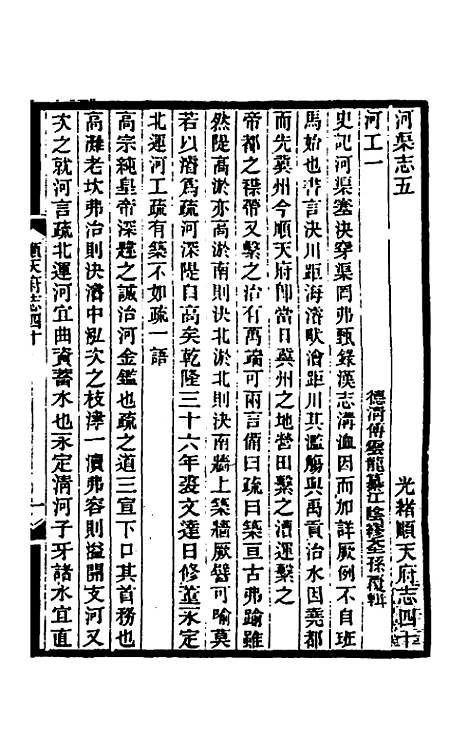 河渠志五　光緒順天府志四十
河工一　德清傅雲龍纂江陰繆荃孫覆輯
史記河渠塞決穿渠罔弗甄錄漢志溝洫因而加詳厥例不自班
馬始也書言決川距海濬畎澮距川其濫觴與禹貢治水因堯都
而先冀州今順天府卽當日冀州之地營田繫之漕運繫之
帝都之襟帶又繫之治有萬端可兩言備曰疏曰築亘古弗踰雖
然隄高淤亦高淤南則決北淤北則決南牆上築牆厥譬可喻莫
若以濬爲疏河深隄自高矣乾隆三十六年裘文達曰修葺永定
北運河工疏有築不如疏一語
高宗純皇帝深韙之誠治河金鑑也疏之道三宣下口其首務也
高灘老坎弗治則決濬中泓次之枝津一瀆弗容則溢開支河又
次之就河言疏北運河宜曲資蓄水也永定淸河子牙諸水宜直
順天府志四十　一